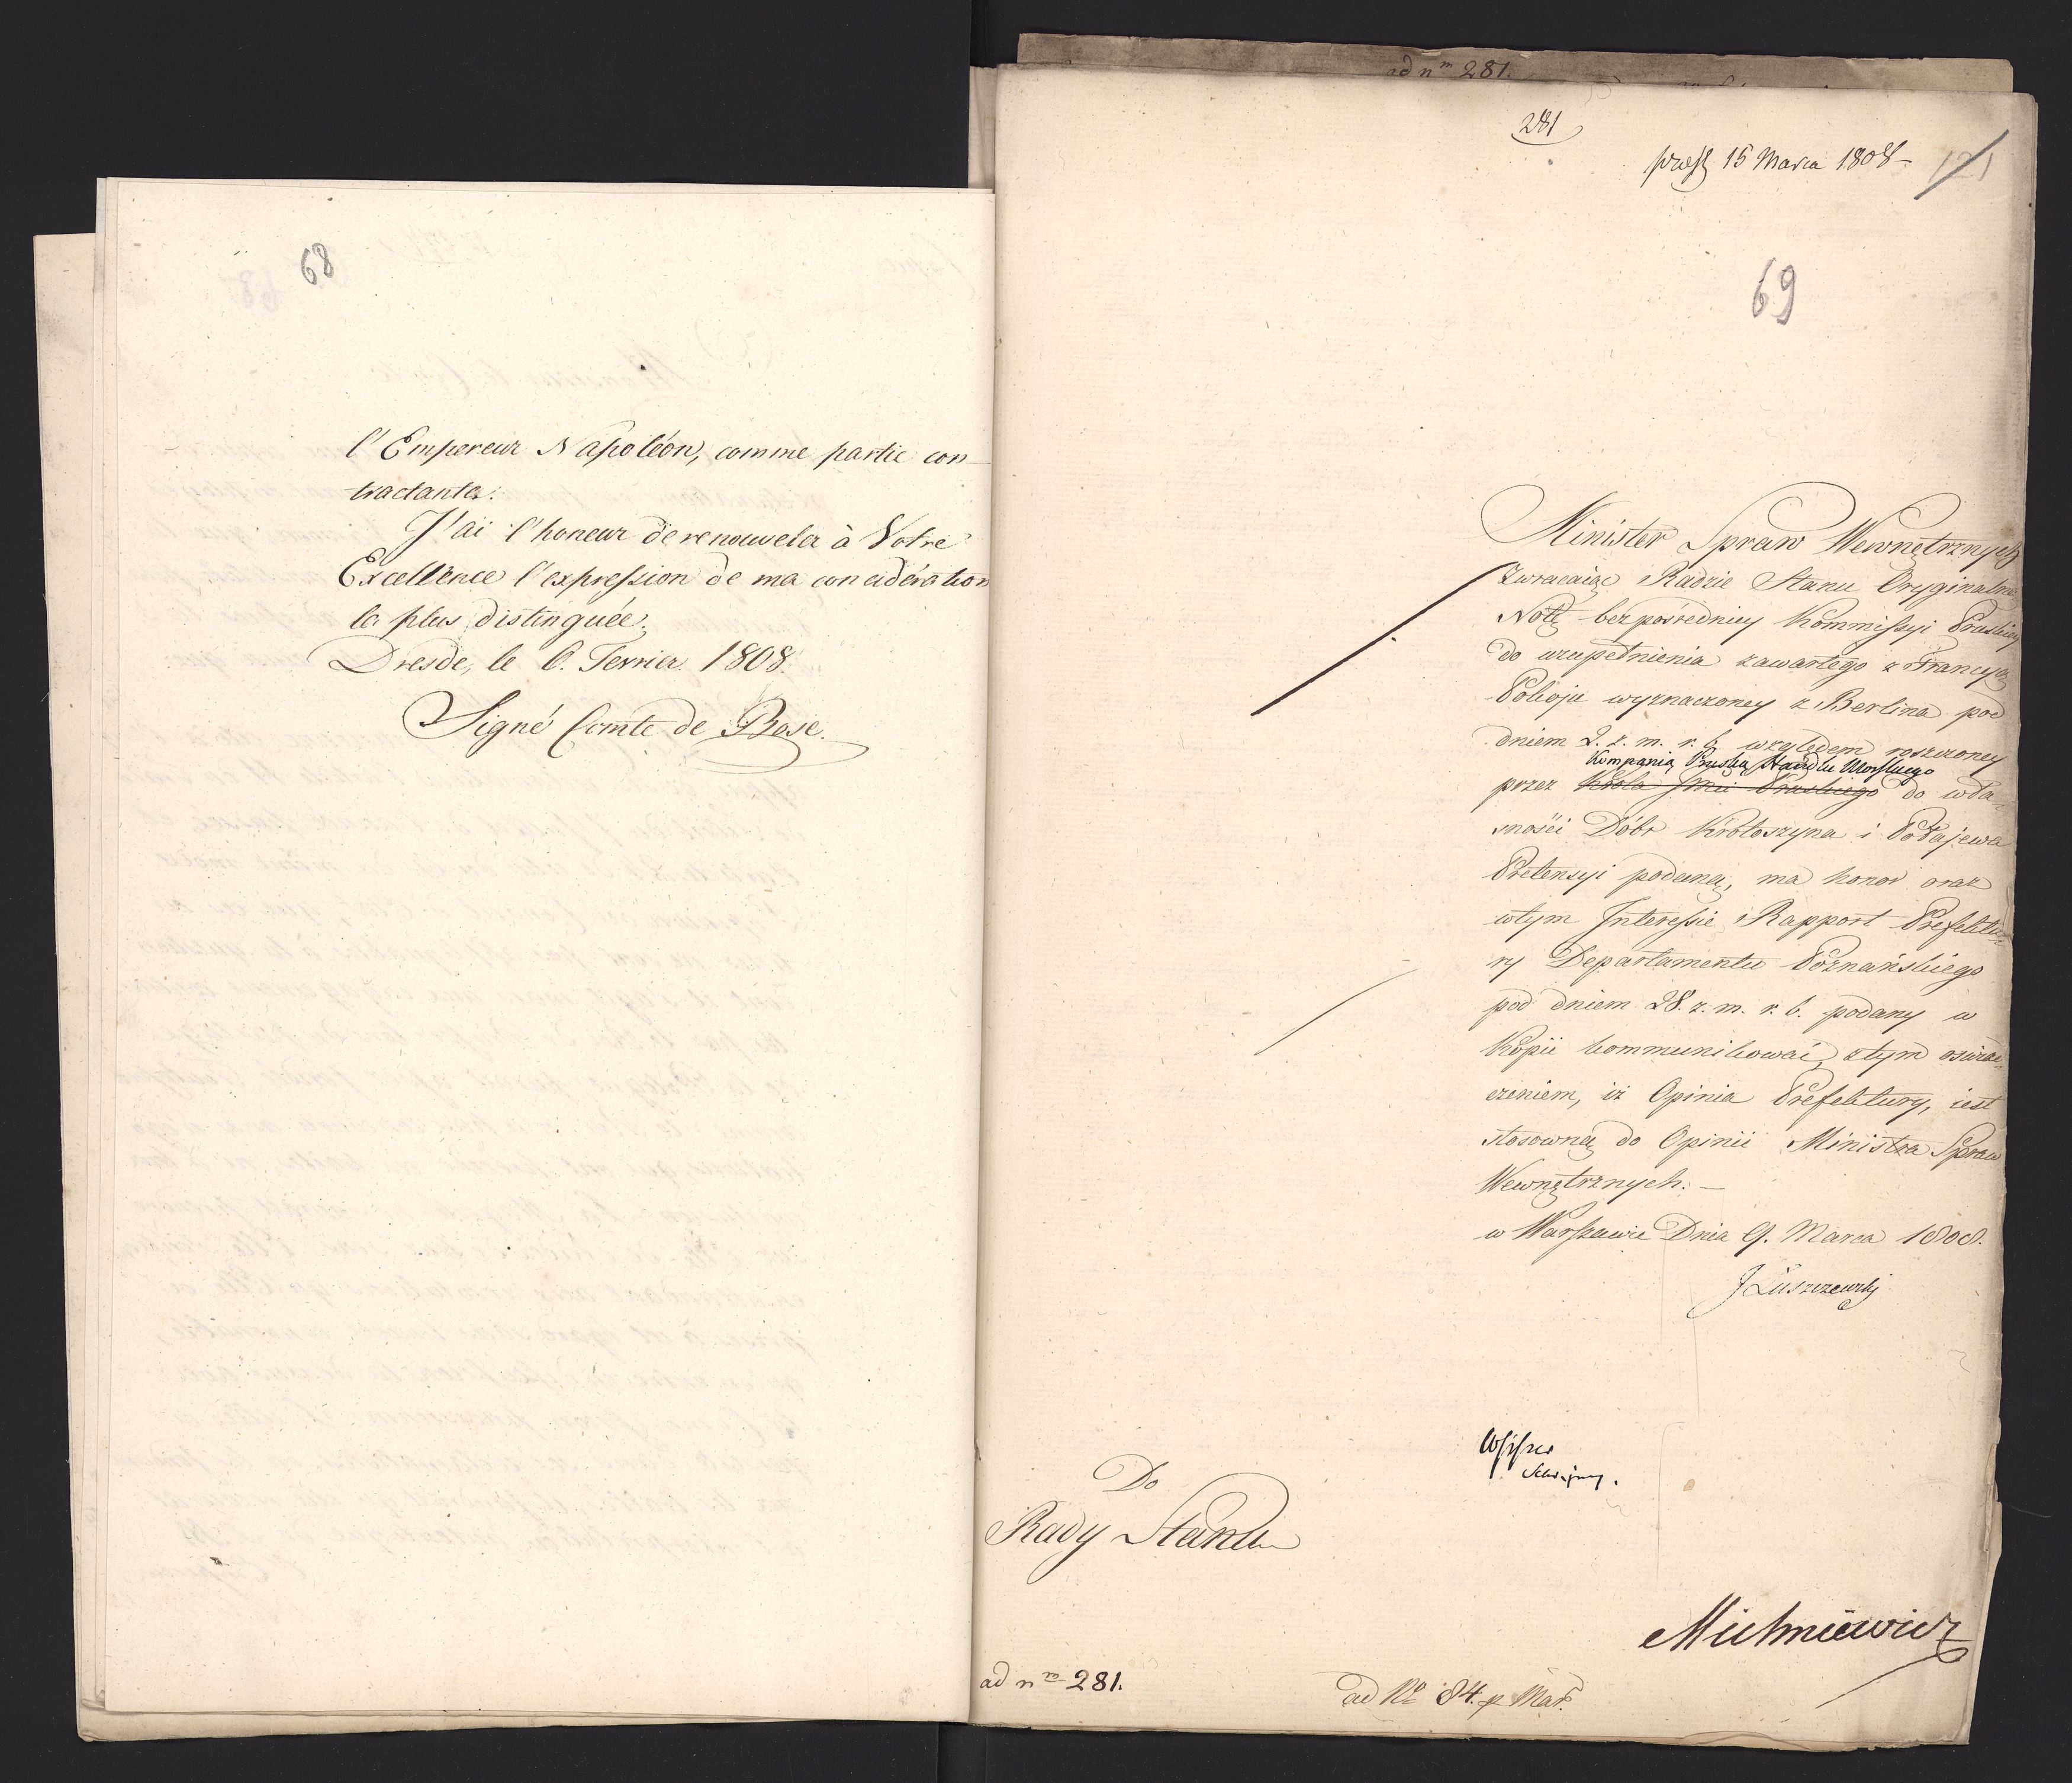 68
l'Empereur Napoléon, comme partie con-
tractante.
J'ai l'honeur de renouveler à Votre
Excellence l'expression de ma considération
la plus distinguée.
Dresde, le 6. Fevrier 1808.
Signé Comte de Bose.
ad nm 281.
281
praes 15 Marca 1808 -
121
69
Minister Spraw Wewnętrznych
Zwracaiąc Radzie Stanu Oryginalną
Notę bezpośredniey Kommissyi Pruskiey
do uzupełnienia zawartego z Francyą
Pokoju wyznaczoney z Berlina pod
dniem 2. z. m. r. b. względem roszczoney
Kompanią Pruską Handlu Morskiego
przez Króla Jmci Pruskiego do wła-
sności Dóbr Krotoszyna i Połajewa
Pretensyi podaną, ma honor oraz
w tym Interessie Rapport Prefektu-
ry Departamentu Poznańskiego
pod dniem 28. z. m. r. b. podany w
Kopii kommunikować, z tym oświad-
czeniem, iż Opinia Prefektury, iest
stosowną do Opinii Ministra Spraw
Wewnętrznych. -
w Warszawie Dnia 9. Marca 1808.
J Łuszczewski
Do
Rady Stanu
Michniewicz
ad nro 281.
ad No 84. p Mar.